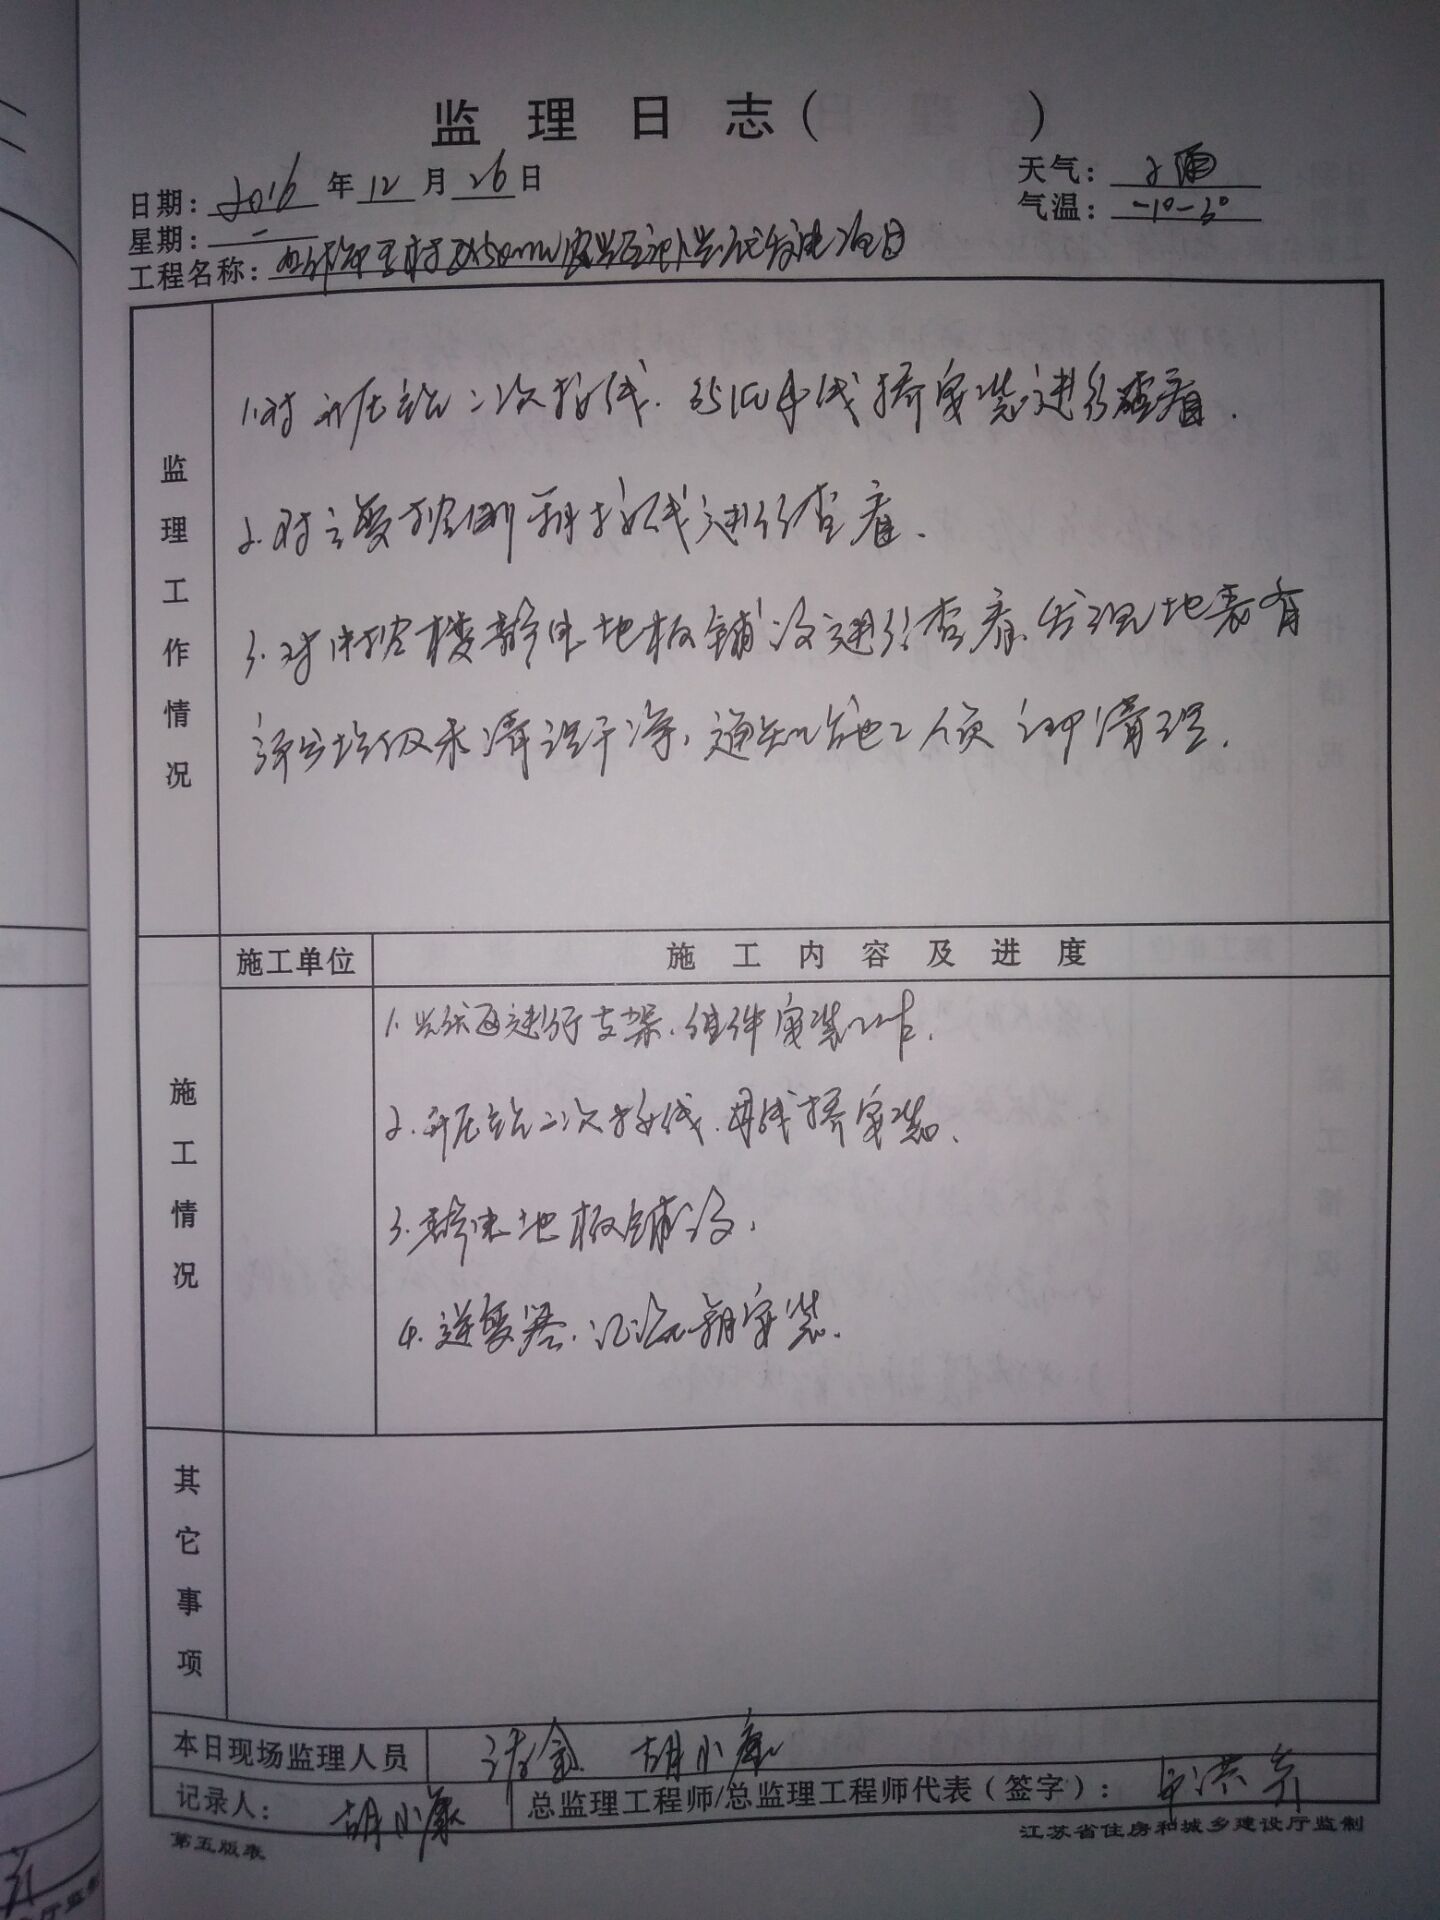 监理日志( )
日期: 2016 年 12 月 26 日
天气: 小雨
星期: 一
气温: -1°-3°
工程名称:
监理工作情况
1.对升压站二次接线、35KV母线桥安装进行查看.
2.对主变控侧 接线进行查看.
3.对中控楼静电地板铺设进行查看,发现地表有
部分垃圾未清理干净,通知施工人员立即清理.
施工单位
施工内容及进度
施工情况
1.光伏区进行支架、组件安装工作.
2.升压站二次接线、母线桥安装.
3.静电地板铺设.
4.逆变器、汇流箱安装.
其它事项
本日现场监理人员 胡小康
记录人: 胡小康
总监理工程师/总监理工程师代表(签字):
第五版表
江苏省住房和城乡建设厅监制